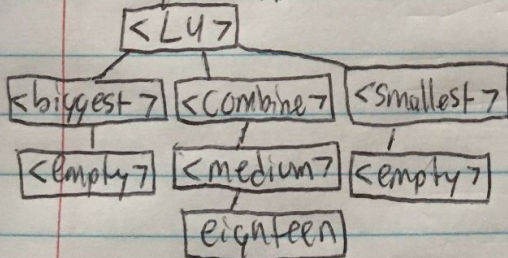 <L4>
<biggest> <combine> <smallest>
<empty> <medium> <empty>
eighteen